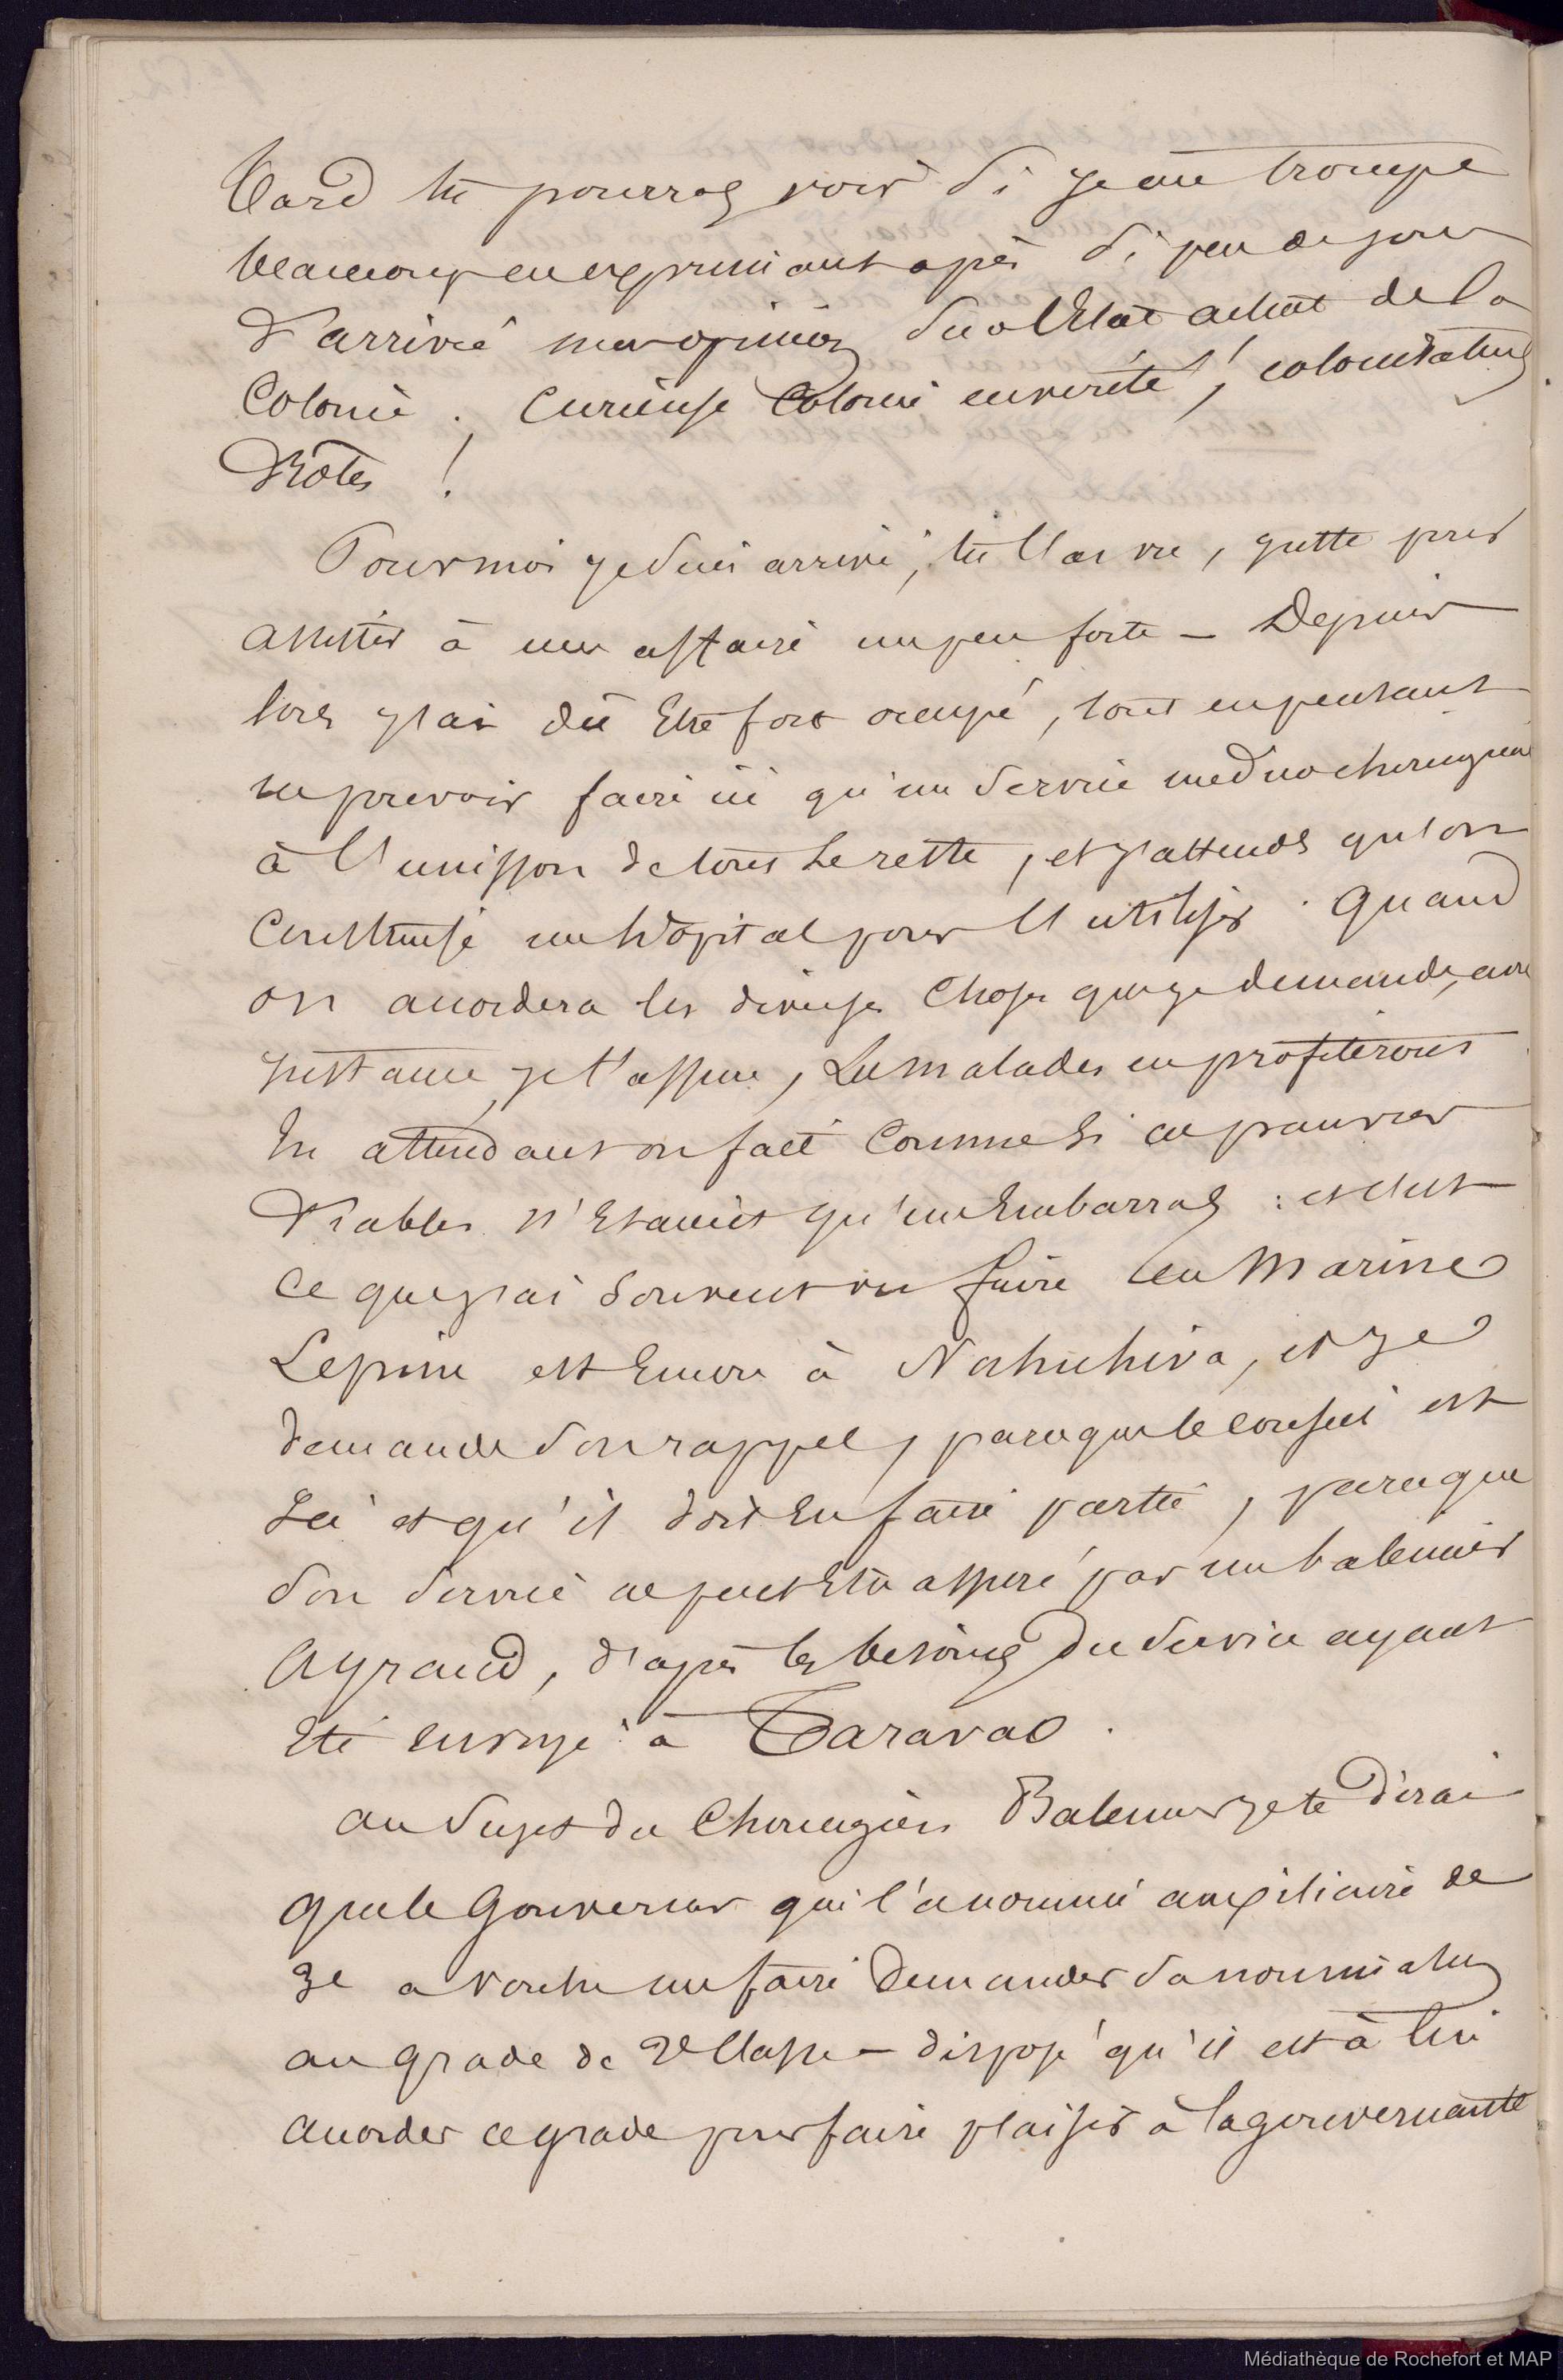 tard tu pourras voir si je me trompe
beaucoup en exprimant après si peu de jours
d'arrivée mon opinion sur l'Etat actuel de la
Colonie. Curieuse Colonie en vérité, colonisation
Drôle !
Pour moi je suis arrivé, tu l'as vu, juste pour
assister à une affaire un peu forte — Depuis
lors j'ai dû Etre fort occupé, tout en pensant
ne pouvoir faire ici qu'un service medico chirurgical
à l'unisson de tout le reste, et j'attends qu'on
Construise un hôpital pour l'utiliser. Quand
on accordera les diverses choses que je demande, avec
instance je t'assure, Les malades en profiteront
En attendant on fait Comme si ces pauvres
Diables n'Etaient qu'un Embarras : et c'est
ce que j'ai souvent vu faire en Marine
Lepine est Encore à Nahuhiva, et je
demande son rappel, parceque le conseil est
ici et qu'il doit En faire partie, parceque
son service ne peut Etre assuré par un baleinier
Ayraud, d'après les besoins du Service ayant
Eté envoyé à Taravao.
au sujet du Chirurgien Baleinier je te dirai
que le Gouverneur qui l'a nommé auxiliaire de
3e a voulu me faire Demander sa nomination
au grade de 2e Classe — disposé qu'il est à lui
accorder ce grade pour faire plaisir à la gouvernante
Médiathèque de Rochefort et MAP